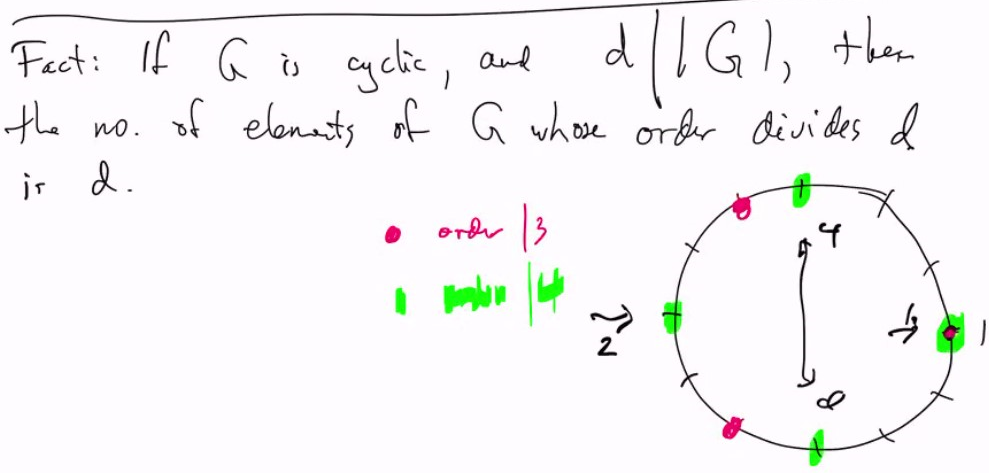 Fact: If G is cyclic, and d | |G|, then
the no. of elements of G whose order divides d
is d.
order | 3
order | 4
1
2